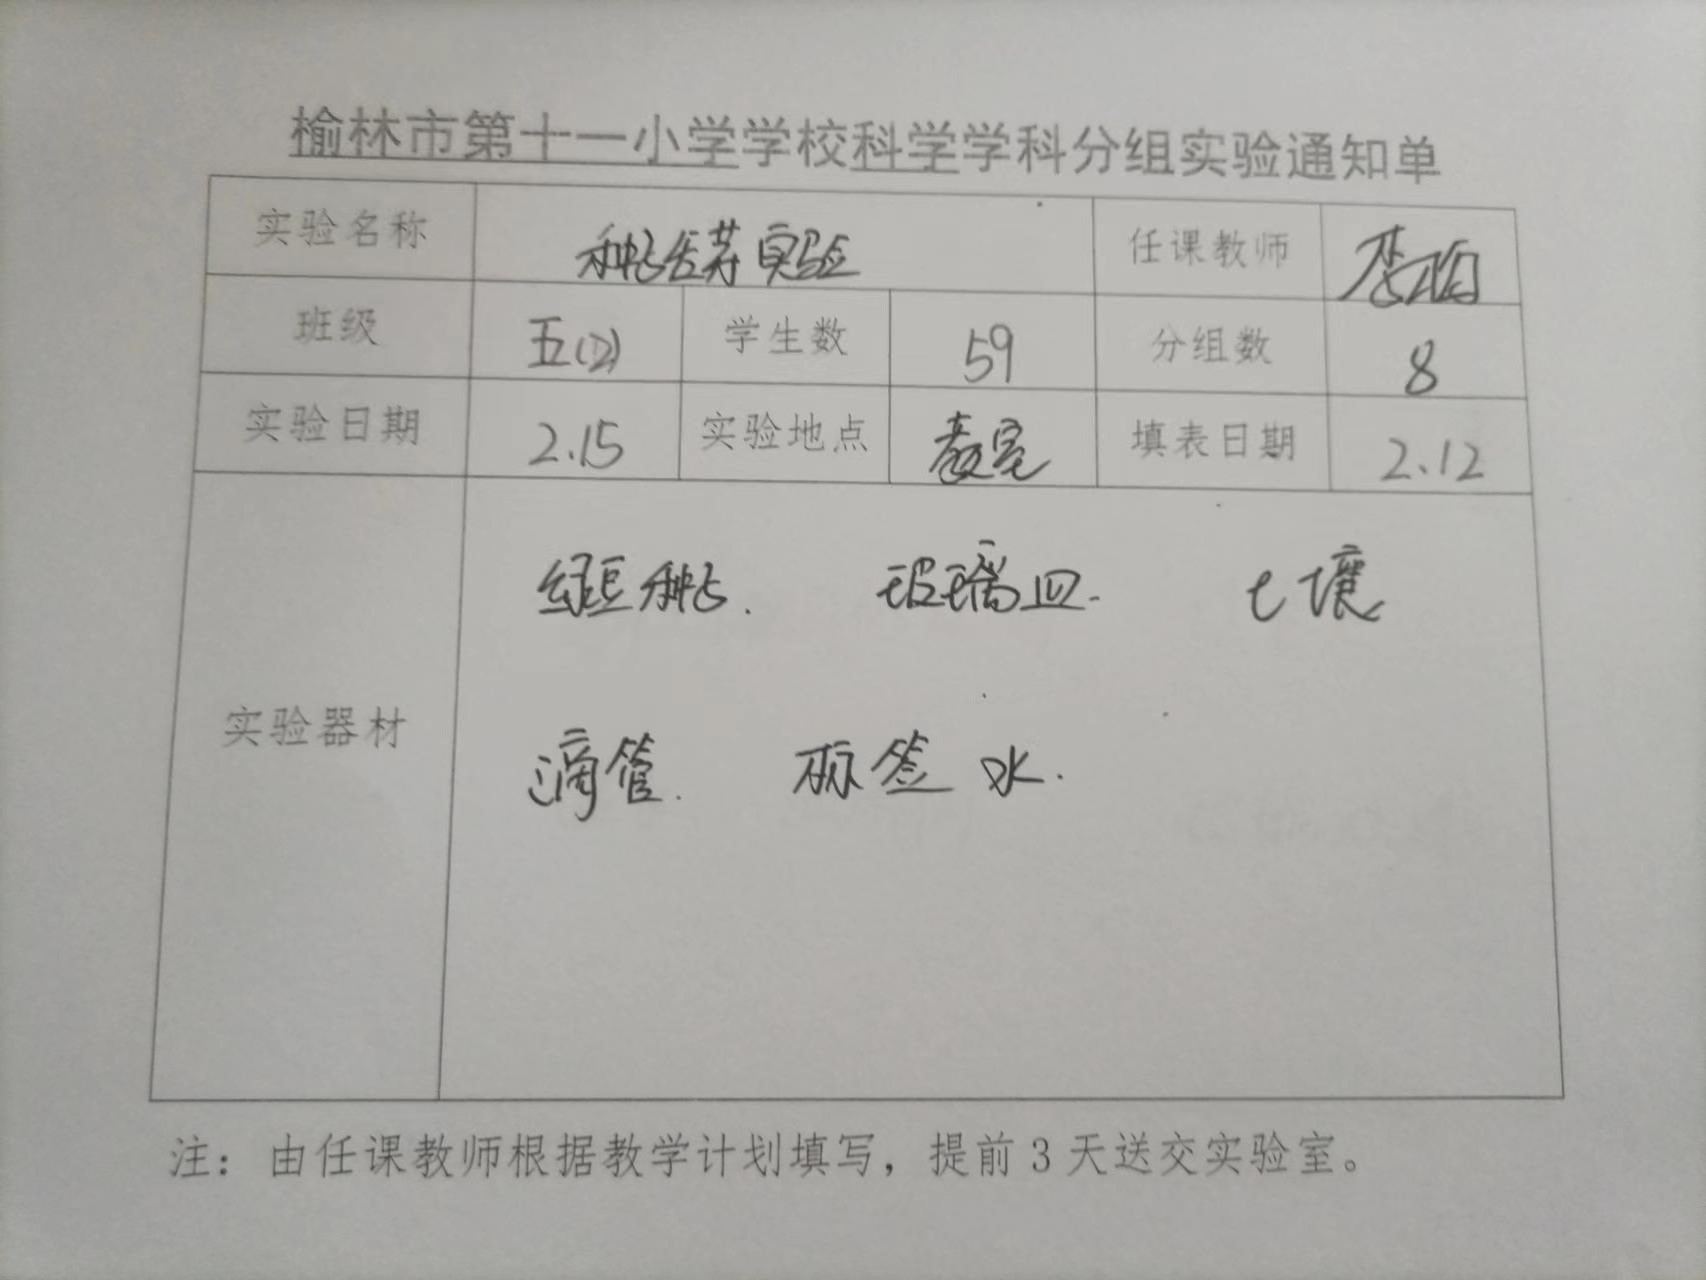 榆林市第十一小学学校科学学科分组实验通知单
实验名称 种子发芽实验 任课教师 李
班级 五(2) 学生数 59 分组数 8
实验日期 2.15 实验地点 教室 填表日期 2.12
绿豆种子. 玻璃皿. 土壤
实验器材
滴管. 标签 水.
注：由任课教师根据教学计划填写，提前3天送交实验室。